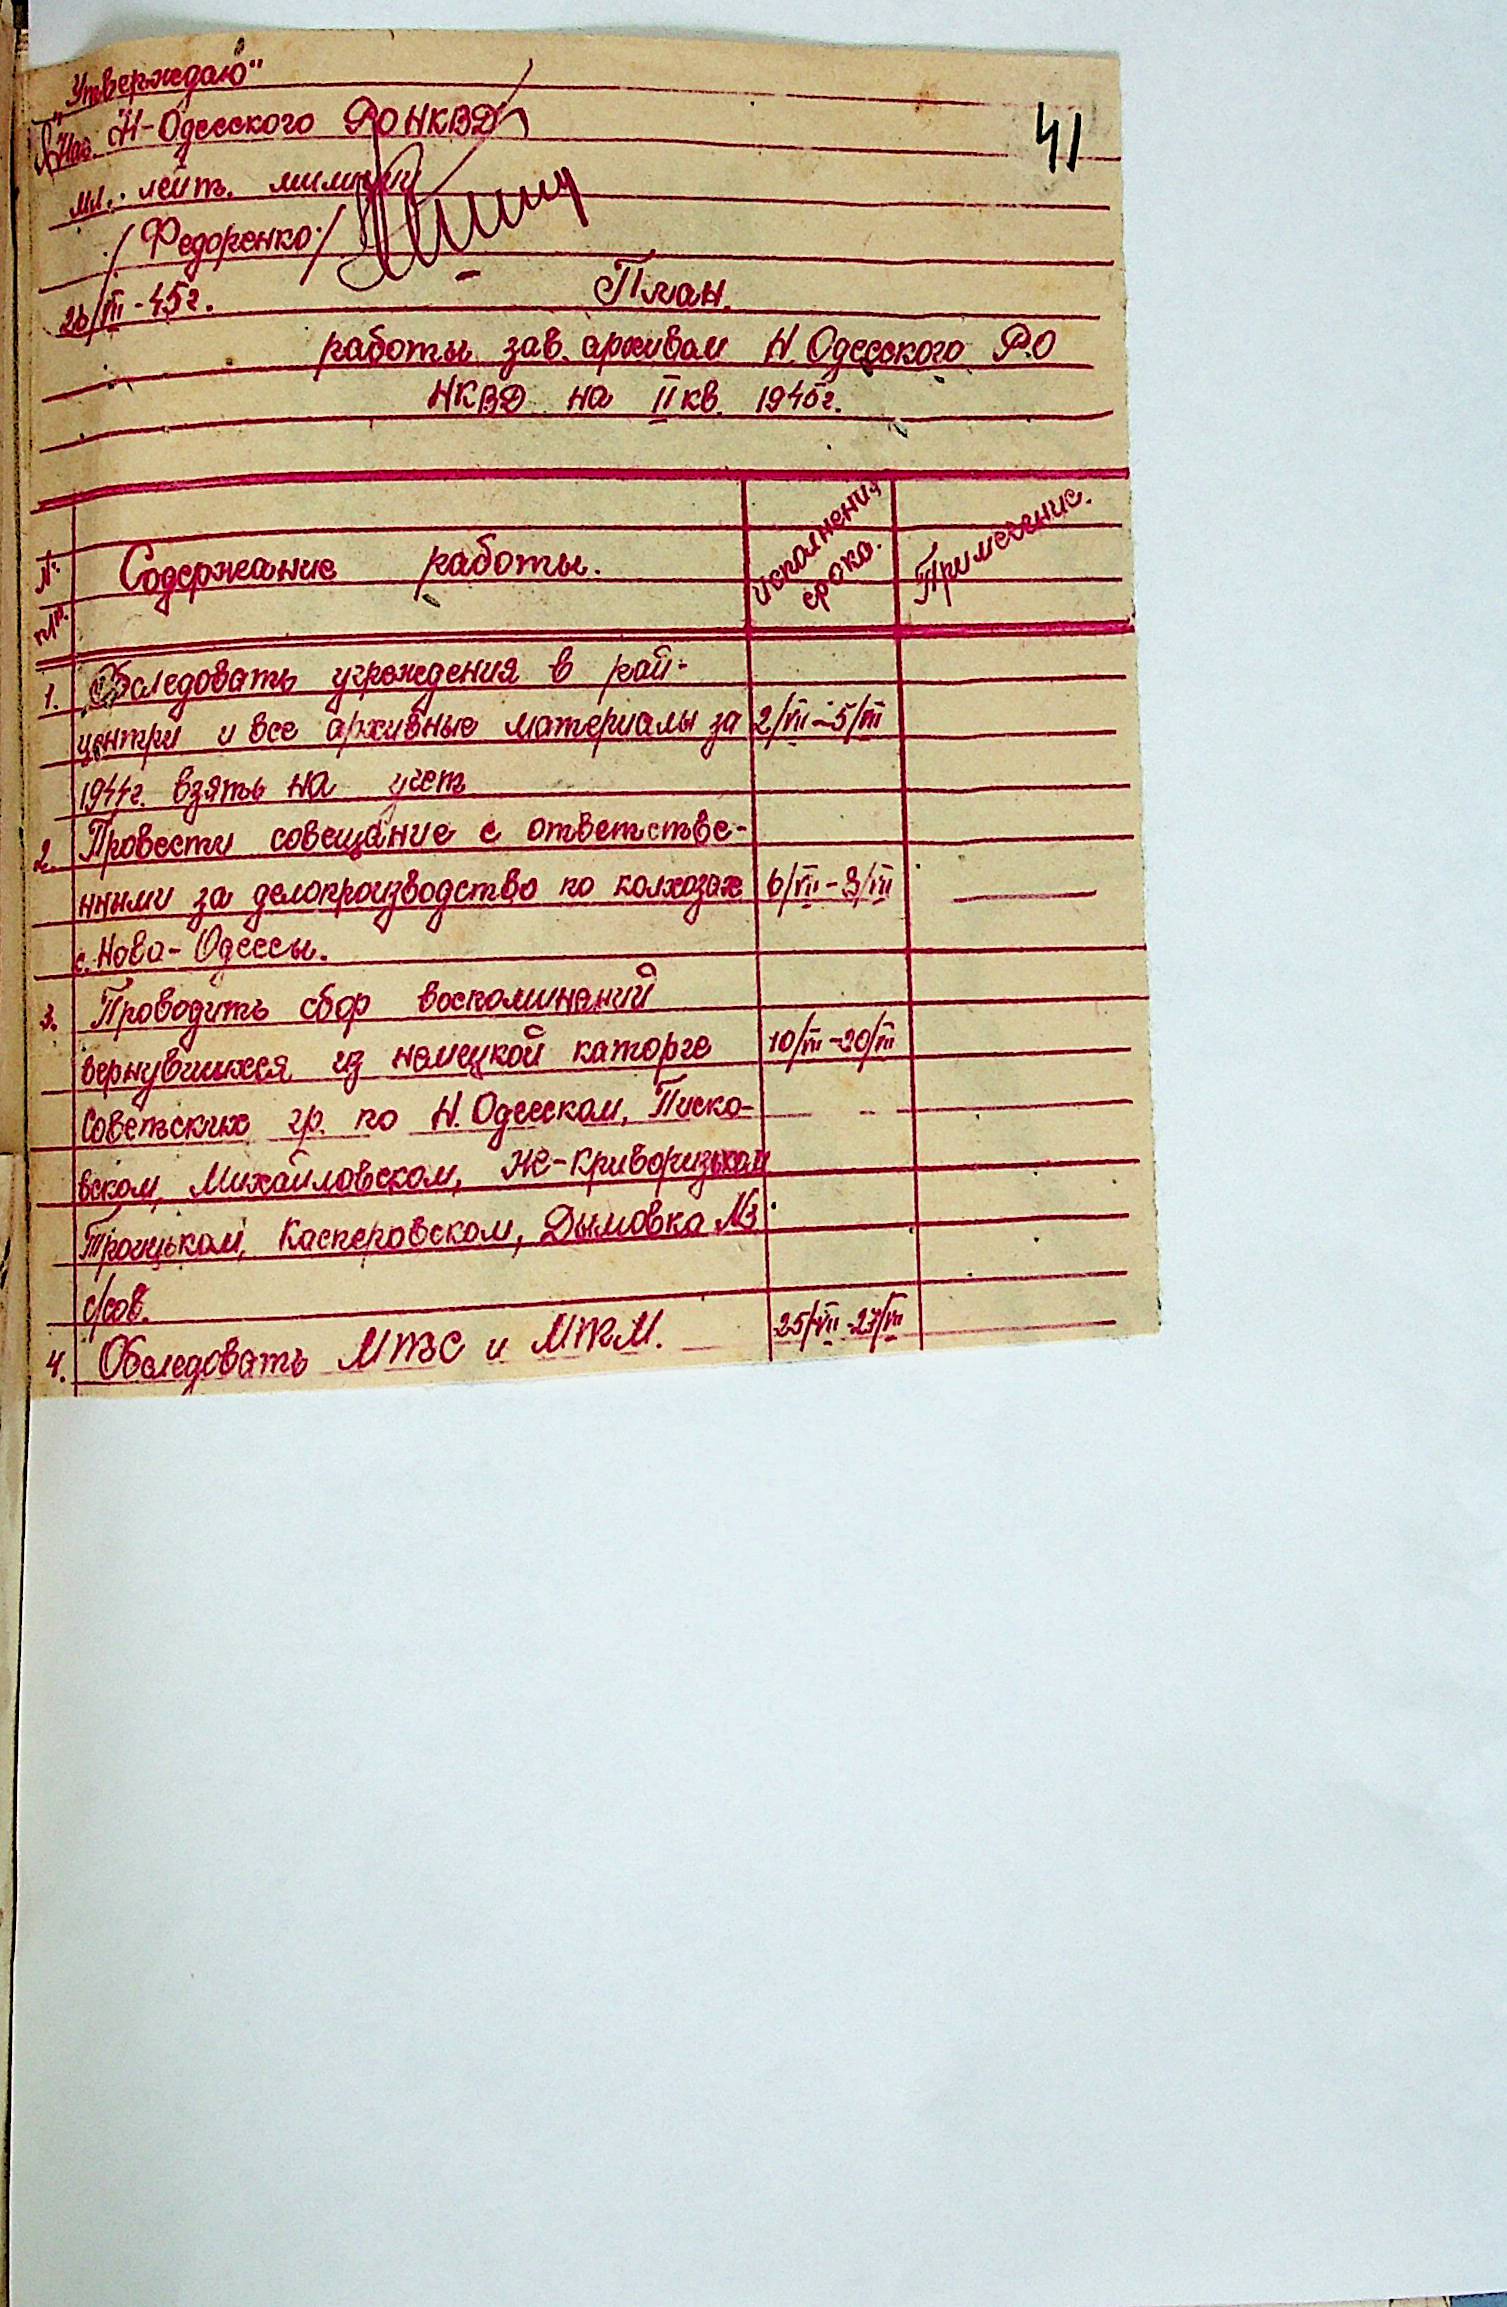 „Утверждаю"
41
Нач. Н-Одесского РО НКВД
мл. лейт. милиции
/Федоренко/
26/VI-45г.
План.
работы зав. архивам Н. Одесского Р.О
НКВД на II кв. 1945г.
№ п/п. Содержание работы. исполнения срока. Примечание.
1. Обследовать учреждения в рай-
центри и все архивные материалы за 2/VII-5/VII
1944г. взять на учет
2. Провести совещание с ответстве-
нными за делопроизводство по колхозах 6/VII-8/VII
с. Ново-Одессы.
3. Проводить сбор воспоминаний
вернувшихся из немецкой каторге 10/VII-20/VII
Советских гр. по Н. Одесском, Писко-
вском, Михайловском, Не-Криворизьком
Троицьком, Касперовском, Дымовка №3
с/сов.
4. Обследовать МТС и МТМ. 25/VII-27/VII